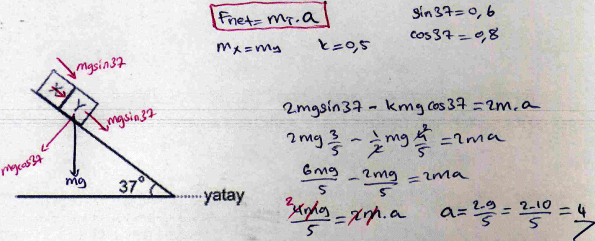 Fnet = mT.a
sin37=0,6
cos37=0,8
mx=my k=0,5
mgsin37
X Y
mgsin37
mgcos37
mg
37°
yatay
2mgsin37 - kmgcos37 = 2m.a
2mg 3/5 - 1/2 mg 4/5 = 2ma
6mg/5 - 2mg/5 = 2ma
4mg/5 = 2m.a a = 2.g/5 = 2.10/5 = 4